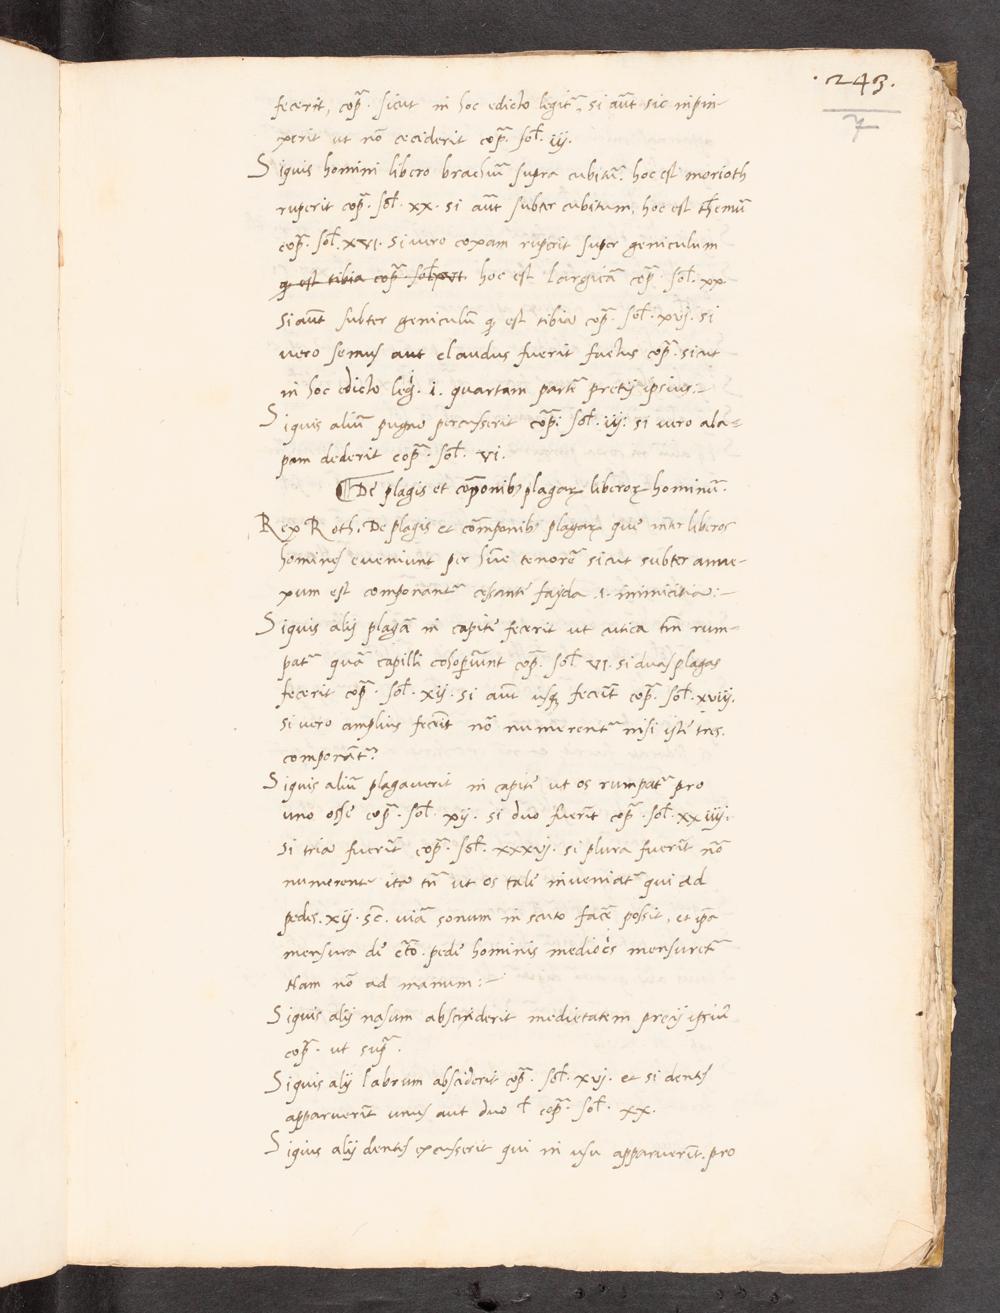 .243.
7
fecerit, cop̄. sicut in hoc edicto legit̄. si aūt sic inpin-
xerit ut nō ceciderit cop̄. sol. iij.
Siquis homini libero brachiū supra cubitū. hoc est morioth
ruperit cop̄. sol. xx. si aūt subter cubitum, hoc est themū
cop̄. sol. xvi. si vero coxam ruperit super geniculum
q̨ est tibia cop̄. sol. xvi. hoc est largicā cop̄. sol. xx
Si aūt subter geniculū q̨ est tibia cop̄. sol. xvj. si
vero semus aut claudus fuerit factus cop̄. sicut
in hoc edicto leg̃. i. quartam partē pretij ipsius:~
Siquis aliū pugno percusserit cop̄. sol. iij: si vero ala=
pam dederit cop̄. sol. vi.
De plagis et cōponib; plagaꝝ liberoꝝ hominū.
Rex Roth. De plagis et cōmponib; plagaꝝ que inter liberos
homines eveniunt per hūc tenorē sicut subter anne-
xum est componant̄ cessante fayda .i. inimicitia:~
Siquis alij plagā in capite fecerit ut cutica tm̄ rum-
pat̄ quā capilli cohoperiunt cop̄. sol. vi. si duas plagas
fecerit cop̄. sol. xij. si aūt usq̨ fecerit cop̄. sol. xviij.
si vero amplius fecerit nō numerent̄ nisi iste tres.
componāt̄?
Siquis aliū plagaverit in capite ut os rumpat̄ pro
uno osse cop̄. sol. xij. si duo fuerīt cop̄. sol. xxiiij.
si tria fuerīt cop̄. sol. xxxvj. si plura fuerīt nō
numerent̄ ita tn̄ ut os tale inveniat̄ qui ad
pedes. xij. sc̄. viā sonum in scuto facē possit, et ip̄a
mensura de c̄to. pede hominis mediocris mensuret̄
Nam nō ad manum:~
Siquis alij nasum absciderit medietatem precij ipsius
cop̄. ut sup̄.
Siquis alij labrum absciderit cop̄. sol. xvj. et si dentes
apparuerīt unus aut duo ł cop̄. sol. xx.
Siquis alij dentes excusserit qui in usu apparuerīt. pro